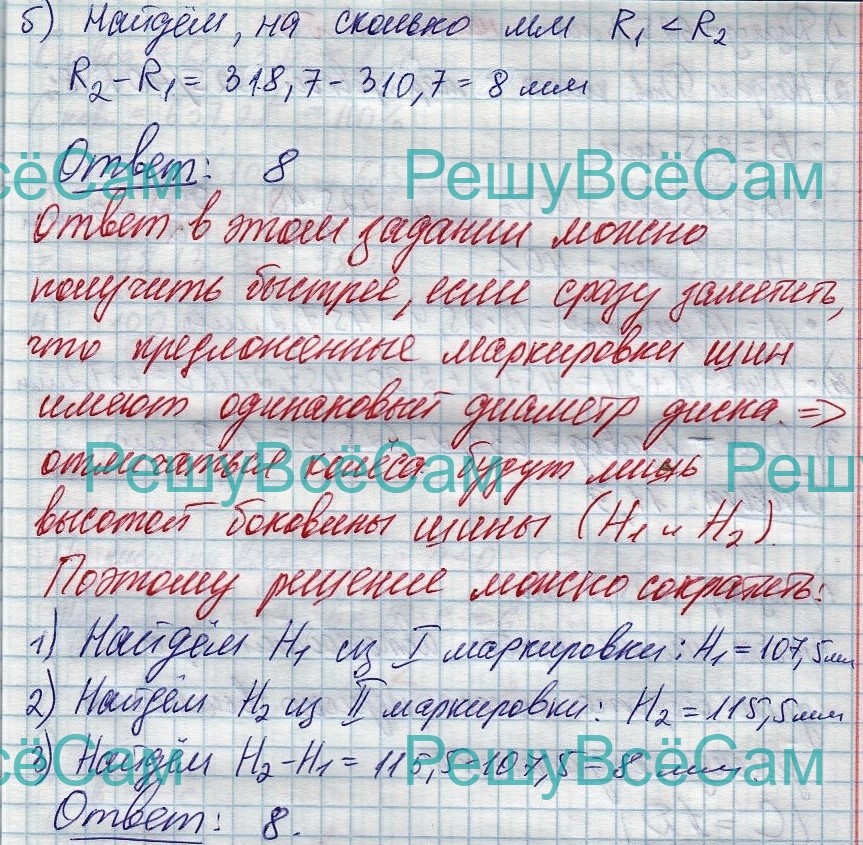 б) Найдём, на сколько мм R₁ < R₂
R₂ – R₁ = 318,7 – 310,7 = 8 мм
Ответ: 8
РешуВсёСам
ёСам
Ответ в этом задании можно
получить быстрее, если сразу заметить,
что предложенные маркировки шин
имеют одинаковый диаметр диска. =>
отличаться колёса будут лишь
РешуВсёСам
Решу
высотой боковины шины (H₁ и H₂).
Поэтому решение можно сократить:
1) Найдём H₁ из I маркировки: H₁ = 107,5мм
2) Найдём H₂ из II маркировки: H₂ = 115,5мм
3) Найдём H₂ – H₁ = 115,5 – 107,5 = 8 мм.
ёСам
РешуВсёСам
Ответ: 8.